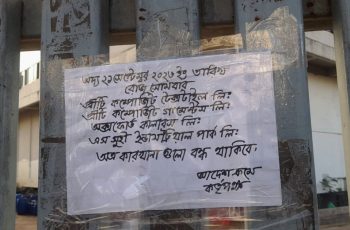 অদ্য ২২ সেপ্টেম্বর ২০২৩ ইং তারিখ
রোজ সোমবার
প্রীতি কম্পোজিট টেক্সটাইল লিঃ
প্রীতি কম্পোজিট গার্মেন্টস লিঃ
অক্সফোর্ড কালারস লিঃ
এস সুহী ইন্ডাস্ট্রিয়াল পার্ক লিঃ
অত্র কারখানা গুলো বন্ধ থাকিবে,
আদেশ ক্রমে
কর্তৃপক্ষ